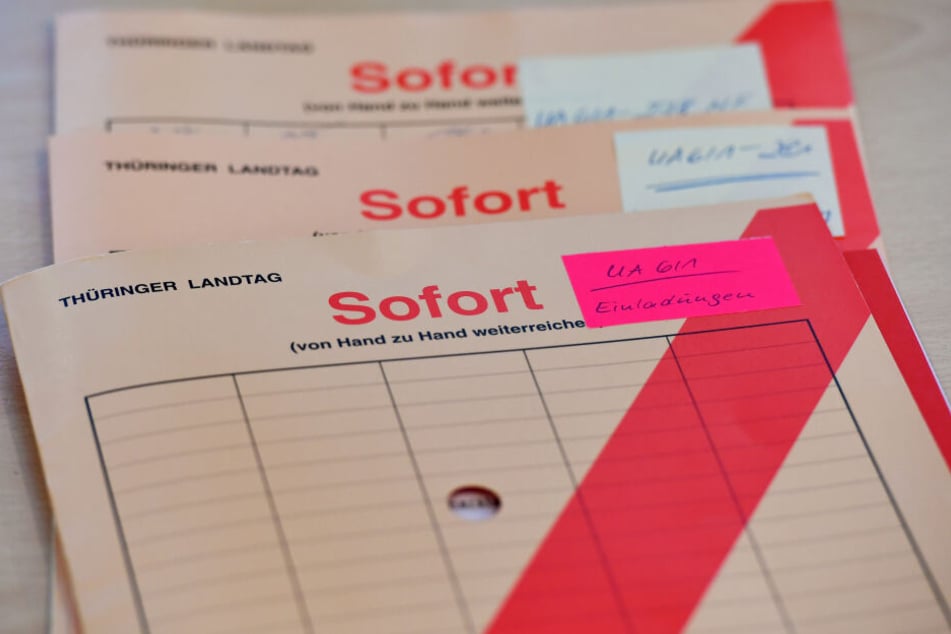 THÜRINGER LANDTAG
Sofor
(von Hand zu Hand weiter
THÜRINGER LANDTAG
Sofort
UA6I1-
THÜRINGER LANDTAG
Sofort
(von Hand zu Hand weiterreiche
UA 6I1
Einladungen